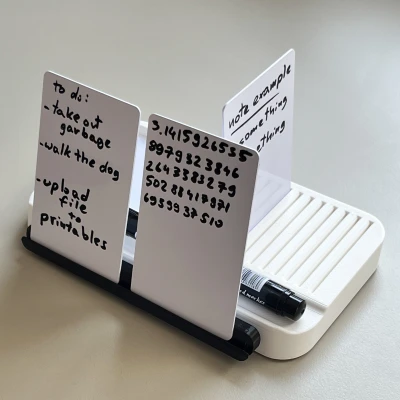 to do:
- take out
garbage
- walk the dog
- upload
file
to
printables
3.1415926535
8979323846
2643383279
5028841971
6939937510
note example
something
ething